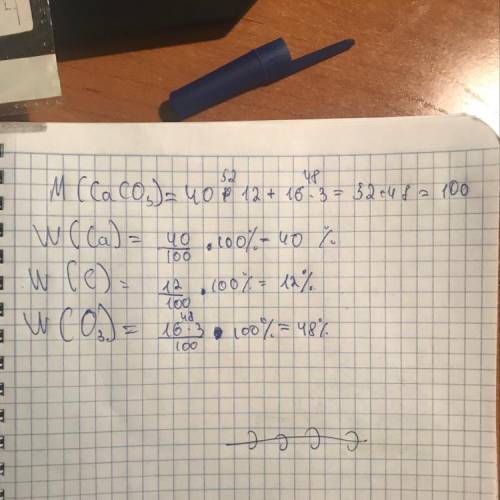 52 48
M(CaCO₃) = 40 + 12 + 16·3 = 52+48 = 100
W(Ca) = 40/100 · 100% = 40 %
W(C) = 12/100 · 100% = 12%
48
W(O₃) = 16·3/100 · 100% = 48%